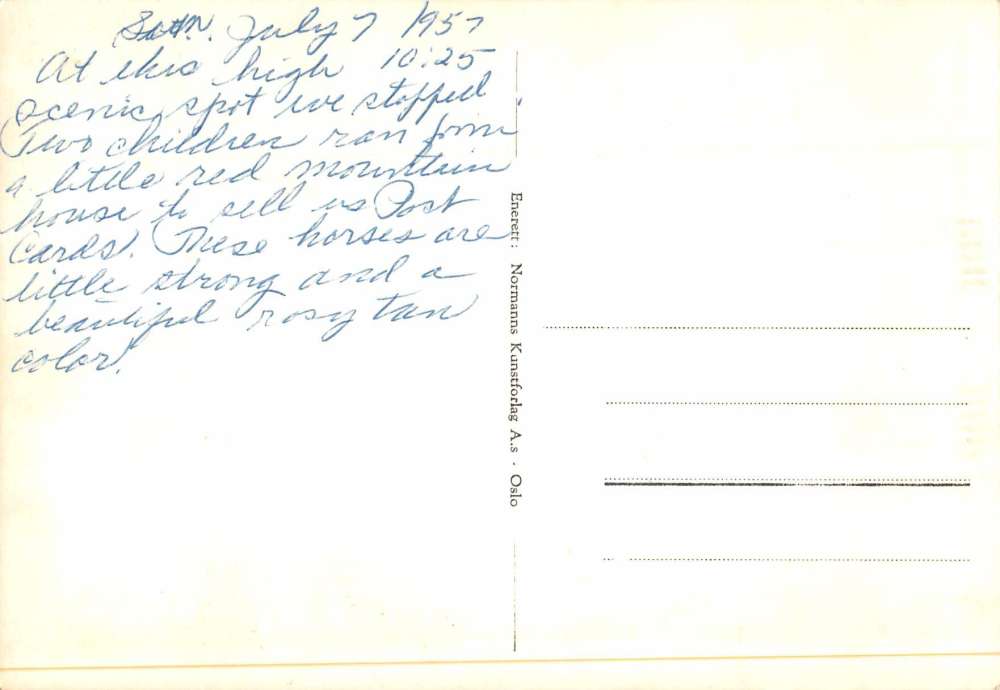 July 7 1957
At this high 10:25
scenic spot we stopped.
Two children ran from
a little red mountain
house to sell us Post
Cards. These horses are
little strong and a
beautiful rosy tan
color.
Enerett: Normanns Kunstforlag A.s · Oslo